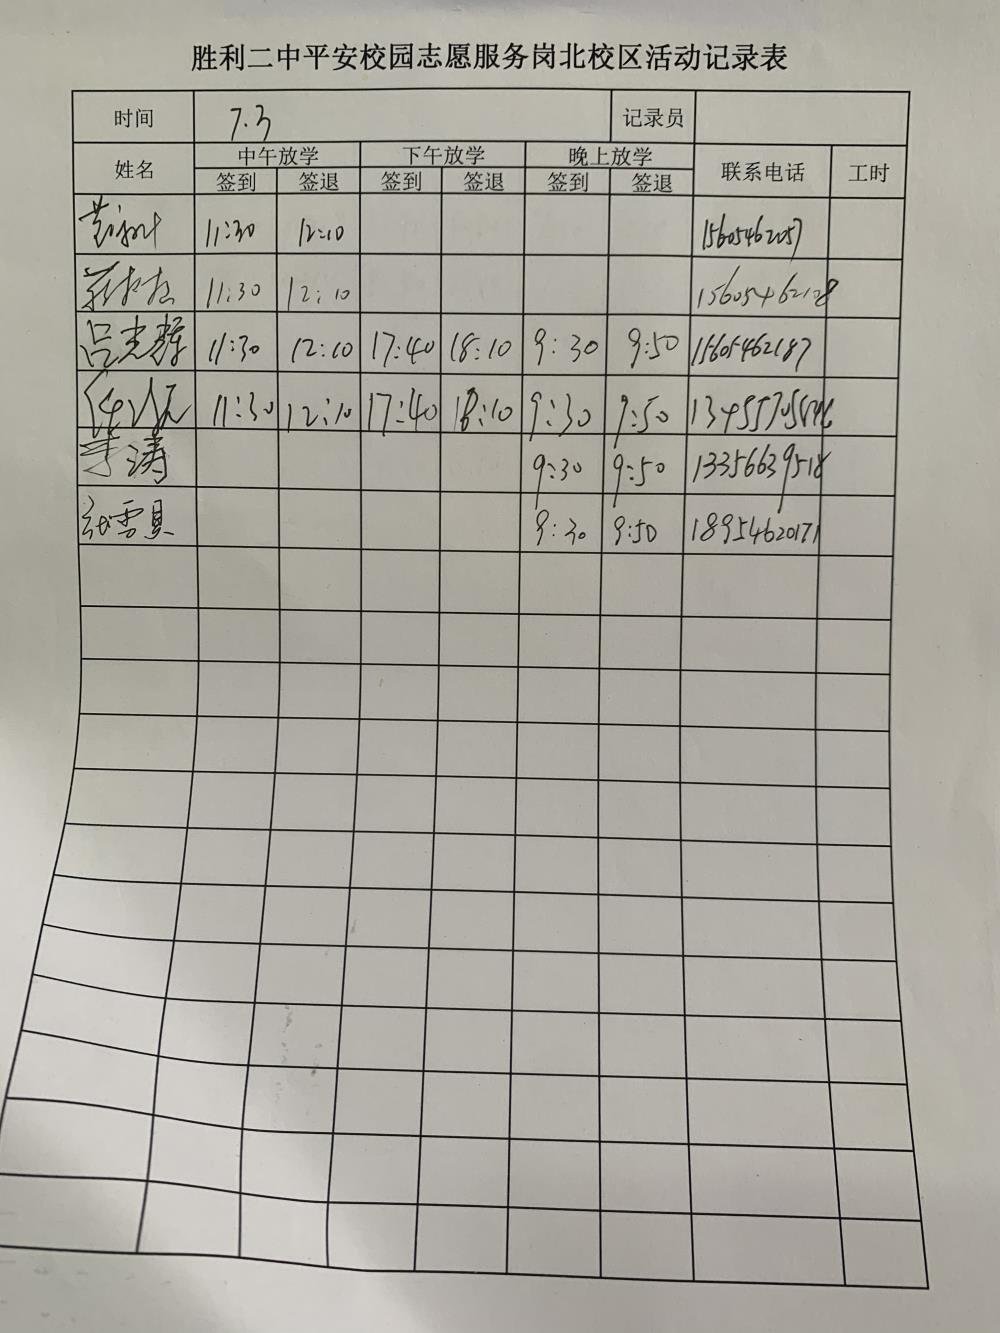 胜利二中平安校园志愿服务岗北校区活动记录表
时间 7.3 记录员
姓名 中午放学 下午放学 晚上放学 联系电话 工时
签到 签退 签到 签退 签到 签退
11:30 12:10 15605462057
11:30 12:10 15605462108
吕光辉 11:30 12:10 17:40 18:10 9:30 9:50 15605462187
11:30 12:10 17:40 18:10 9:30 9:50
李涛 9:30 9:50 13356639518
张雪真 9:30 9:50 18954620171